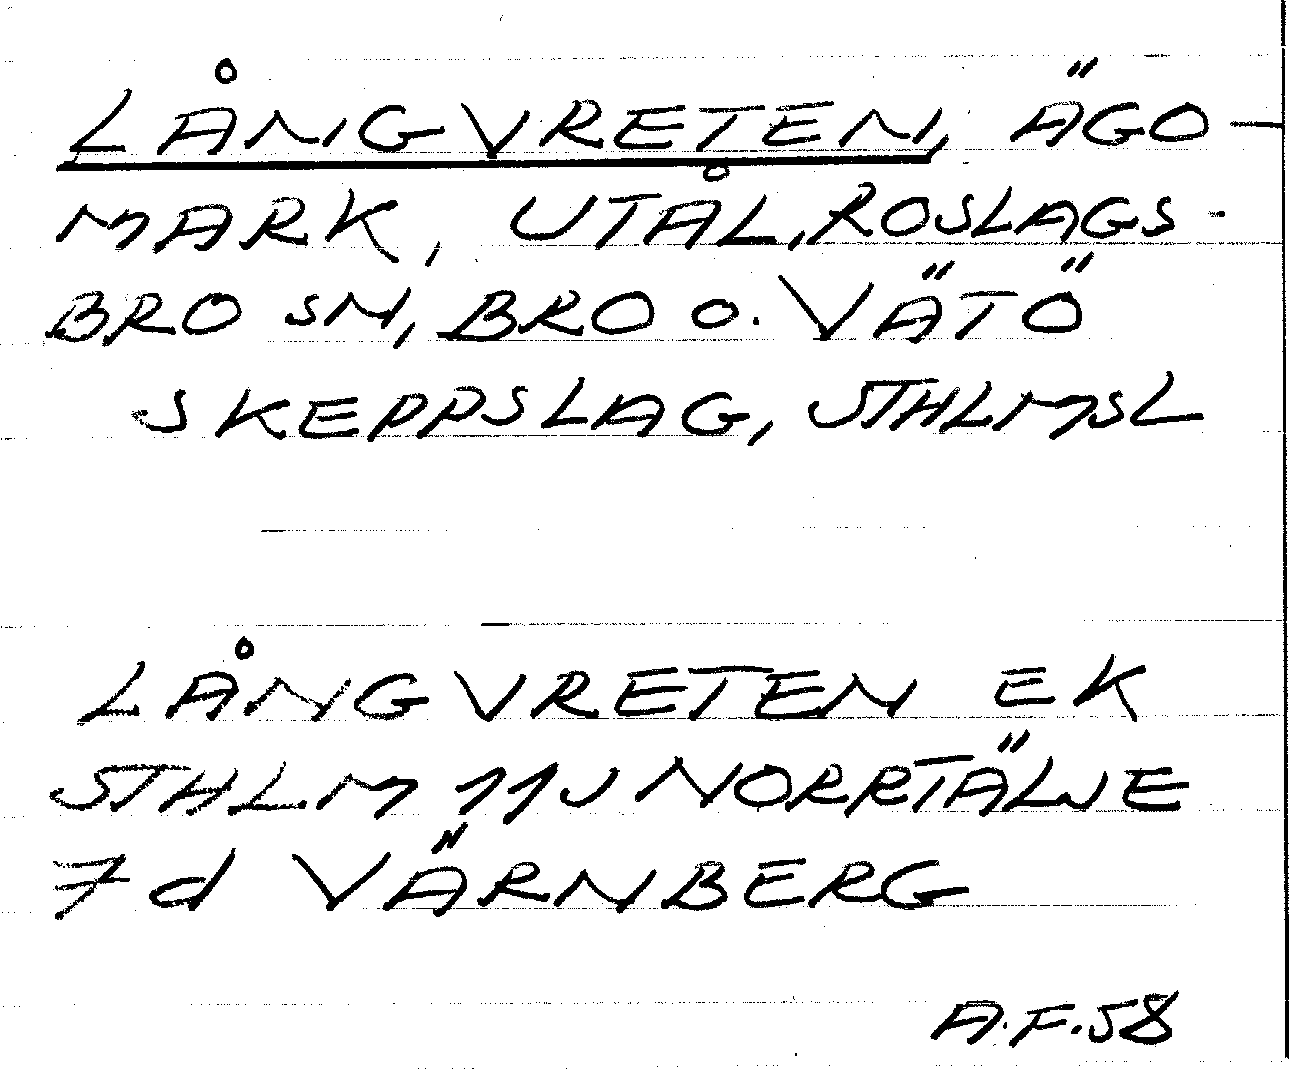 LÅNGVRETEN, ÄGO-
MARK, UTÅL, ROSLAGS-
BRO SN, BRO O. VÄTÖ
SKEPPSLAG, STHLMSL
LÅNGVRETEN EK
STHLM 11J NORRTÄLJE
7d VÄRNBERG
A.F.58